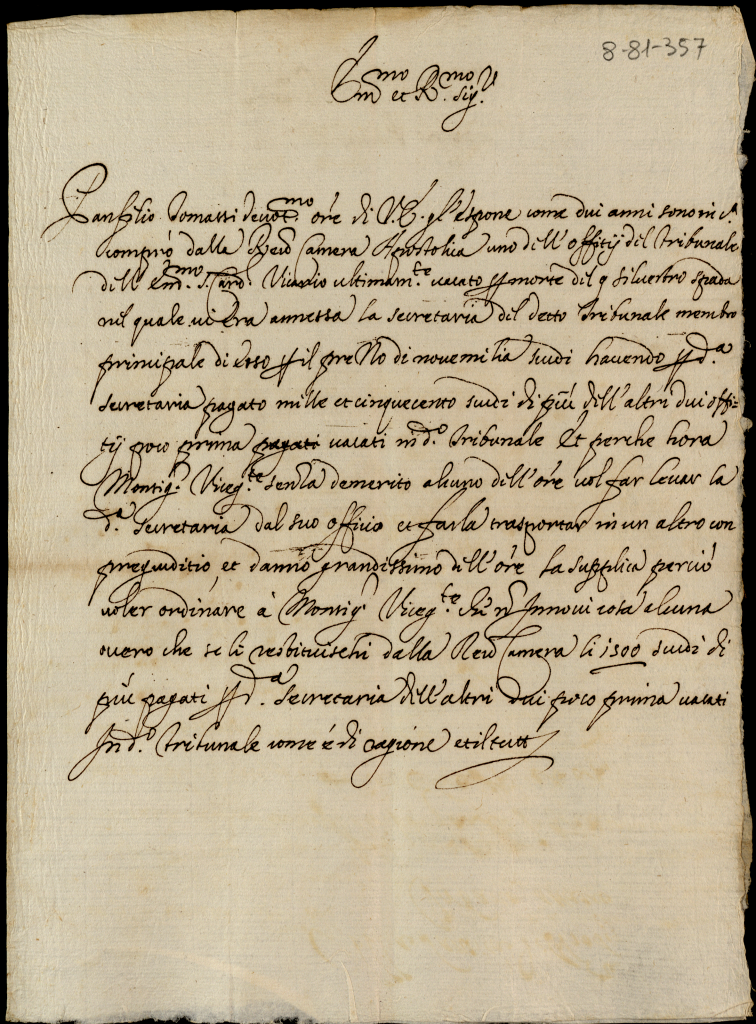 8-81-357
Em.mo et R.mo Sig.re
Panfilio Tomassi devot.mo ore di V.E. gl'espone come dui anni sono in c.a
comprò dalla Reu Camera Apostolica uno dell'offitij del Tribunale
dell'Em.mo S. Card. Vicario ultimam.te vacato p morte del q Silvestro Spada
nel quale vi era annessa la secretaria del detto Tribunale membro
principale di esso p il prezzo di novemilia scudi havendo p d.a
secretaria pagato mille et cinquecento scudi di più dell'altri dui offi-
tij poco prima pagati vacati in d.o Tribunale Et perche hora
Monsig.r Viceg.te senza demerito alcuno dell'ore vol far levar la
d.a secretaria dal suo officio et farla trasportar in un altro con
pregiuditio et danno grandissimo dell'ore La supplica perciò
voler ordinare à Monsig.r Viceg.te che non Innovi cosa alcuna
overo che se li restituischi dalla Reu Camera li 1500 scudi di
più pagati p d.a secretaria dell'altri dui poco prima vacati
In d.o Tribunale come è di ragione et il tutt